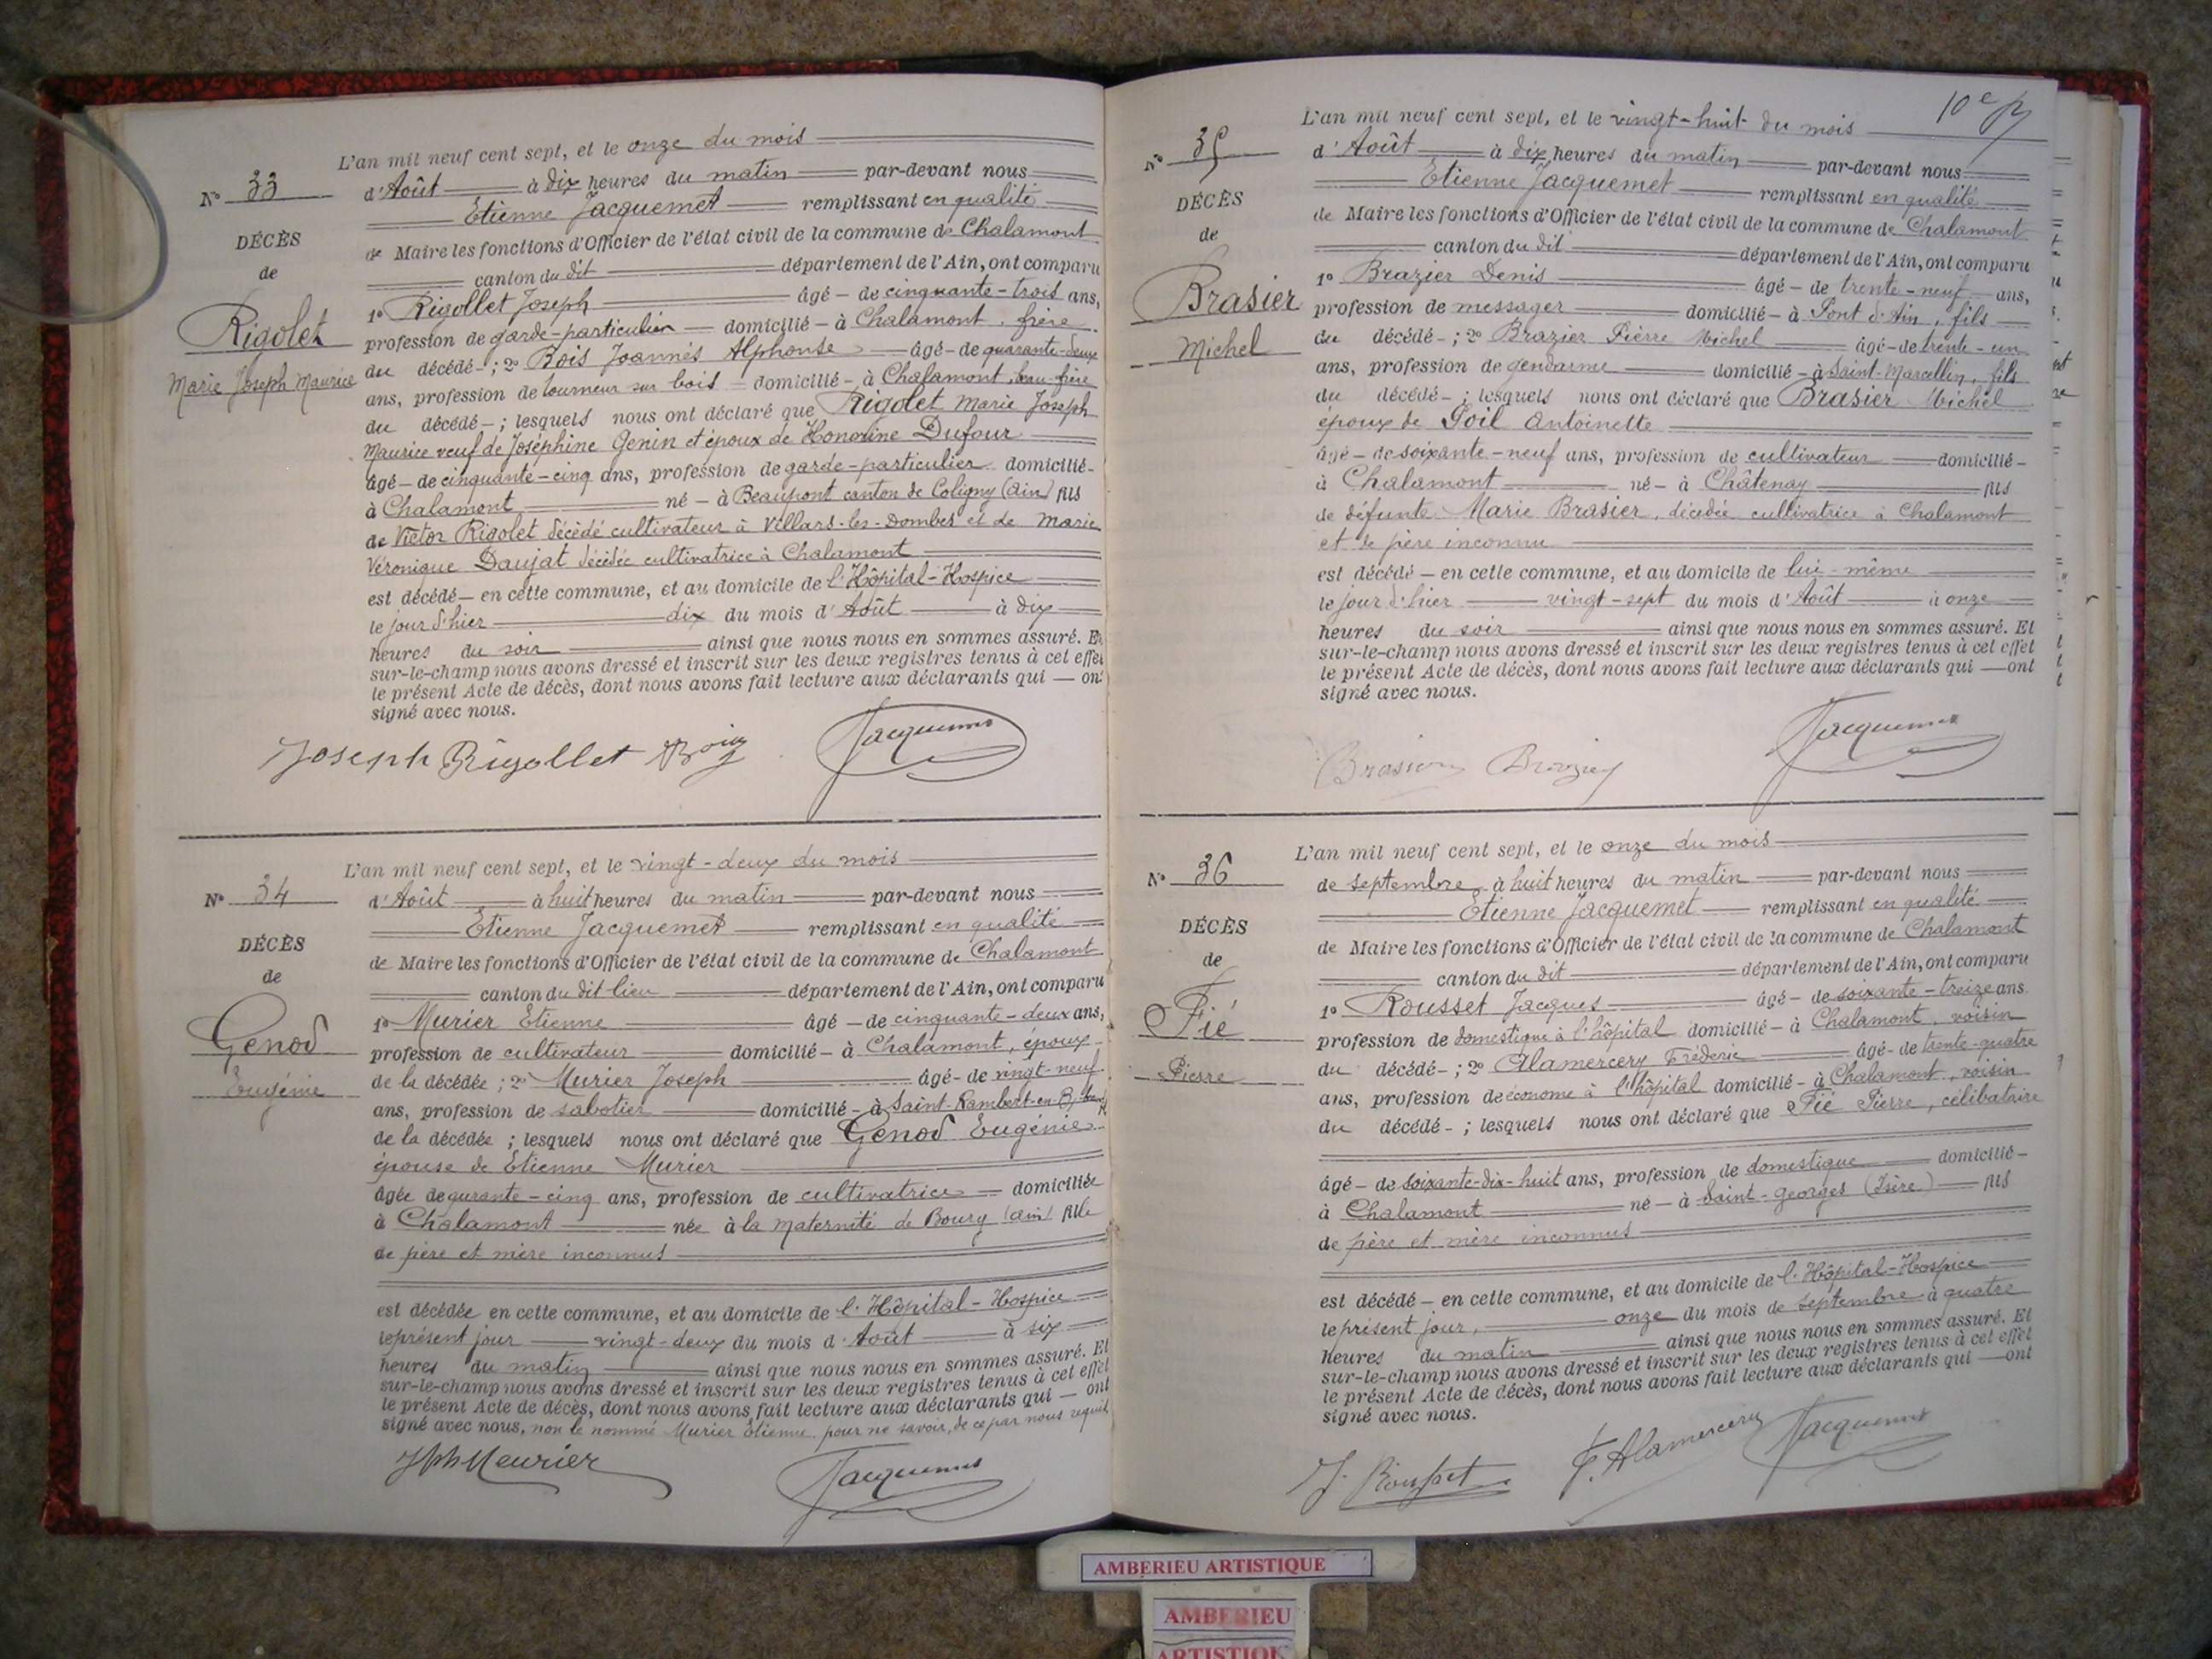 N° 33
DÉCÈS
de
Rigolet
Marie Joseph Maurice
L'an mil neuf cent sept, et le onze du mois
d'Août à dix heures du matin par-devant nous
Etienne Jacquemet remplissant en qualité
de Maire les fonctions d'Officier de l'état civil de la commune de Chalamont
canton du dit département de l'Ain, ont comparu
1° Rigollet Joseph âgé - de cinquante-trois ans,
profession de garde-particulier domicilié - à Chalamont, frère
du décédé - ; 2° Bois Joannès Alphonse âgé - de quarante-deux
ans, profession de tourneur sur bois domicilié - à Chalamont, beau-frère
du décédé - ; lesquels nous ont déclaré que Rigolet Marie Joseph
Maurice veuf de Joséphine Genin et époux de Honorine Dufour
âgé - de cinquante-cinq ans, profession de garde-particulier domicilié -
à Chalamont né - à Beaupont canton de Coligny (Ain) fils
de Victor Rigolet décédé cultivateur à Villars-les-Dombes et de Marie
Véronique Daujat décédée cultivatrice à Chalamont
est décédé - en cette commune, et au domicile de l'Hôpital-Hospice
le jour d'hier dix du mois d'Août à dix
heures du soir ainsi que nous nous en sommes assuré. Et
sur-le-champ nous avons dressé et inscrit sur les deux registres tenus à cet effet
le présent Acte de décès, dont nous avons fait lecture aux déclarants qui — ont
signé avec nous.
Joseph Rigollet Bois Jacquemet
N° 34
DÉCÈS
de
Genod
Eugénie
L'an mil neuf cent sept, et le vingt-deux du mois
d'Août à huit heures du matin par-devant nous
Etienne Jacquemet remplissant en qualité
de Maire les fonctions d'Officier de l'état civil de la commune de Chalamont
canton du dit lieu département de l'Ain, ont comparu
1° Murier Etienne âgé - de cinquante-deux ans,
profession de cultivateur domicilié - à Chalamont, époux
de la décédée ; 2° Murier Joseph âgé - de vingt-neuf
ans, profession de sabotier domicilié - à Saint-Rambert-en-B.
de la décédée ; lesquels nous ont déclaré que Genod Eugénie
épouse de Etienne Murier
âgée de qurante-cinq ans, profession de cultivatrice domiciliée
à Chalamont née à la maternité de Bourg (Ain) fille
de père et mère inconnus
est décédée en cette commune, et au domicile de l'Hôpital-Hospice
le présent jour vingt-deux du mois d'Août à six
heures du matin ainsi que nous nous en sommes assuré. Et
sur-le-champ nous avons dressé et inscrit sur les deux registres tenus à cet effet
le présent Acte de décès, dont nous avons fait lecture aux déclarants qui — ont
signé avec nous, non le nommé Murier Etienne pour ne savoir, de ce par nous requis
Jph Meurier Jacquemet
10e
N° 35
DÉCÈS
de
Brasier
Michel
L'an mil neuf cent sept, et le vingt-huit du mois
d'Août à dix heures du matin par-devant nous
Etienne Jacquemet remplissant en qualité
de Maire les fonctions d'Officier de l'état civil de la commune de Chalamont
canton du dit département de l'Ain, ont comparu
1° Brazier Denis âgé - de trente-neuf ans,
profession de messager domicilié - à Pont d'Ain, fils
du décédé - ; 2° Brazier Pierre Michel âgé - de trente-un
ans, profession de gendarme domicilié - à Saint-Marcellin, fils
du décédé - ; lesquels nous ont déclaré que Brasier Michel
époux de Goil Antoinette
âgé - de soixante-neuf ans, profession de cultivateur domicilié -
à Chalamont né - à Châtenay fils
de défunte Marie Brasier, décédée cultivatrice à Chalamont
et de père inconnu
est décédé - en cette commune, et au domicile de lui-même
le jour d'hier vingt-sept du mois d'Août à onze
heures du soir ainsi que nous nous en sommes assuré. Et
sur-le-champ nous avons dressé et inscrit sur les deux registres tenus à cet effet
le présent Acte de décès, dont nous avons fait lecture aux déclarants qui — ont
signé avec nous.
Brasier Brazier Jacquemet
N° 36
DÉCÈS
de
Fié
Pierre
L'an mil neuf cent sept, et le onze du mois
de septembre à huit heures du matin par-devant nous
Etienne Jacquemet remplissant en qualité
de Maire les fonctions d'Officier de l'état civil de la commune de Chalamont
canton du dit département de l'Ain, ont comparu
1° Rousset Jacques âgé - de soixante-treize ans
profession de domestique à l'hôpital domicilié - à Chalamont, voisin
du décédé - ; 2° Alamercery Fréderic âgé - de trente-quatre
ans, profession de économe à l'hôpital domicilié - à Chalamont, voisin
du décédé - ; lesquels nous ont déclaré que Fié Pierre, célibataire
âgé - de soixante-dix-huit ans, profession de domestique domicilié -
à Chalamont né - à Saint-Georges (Isère) fils
de père et mère inconnus
est décédé - en cette commune, et au domicile de l'Hôpital-Hospice
le présent jour, onze du mois de septembre à quatre
heures du matin ainsi que nous nous en sommes assuré. Et
sur-le-champ nous avons dressé et inscrit sur les deux registres tenus à cet effet
le présent Acte de décès, dont nous avons fait lecture aux déclarants qui — ont
signé avec nous.
J. Rousset F. Alamercery Jacquemet
AMBERIEU ARTISTIQUE
AMBERIEU
ARTISTIQUE